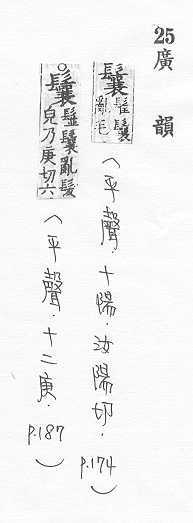 25廣韻
鬤鬤亂毛（平聲．十陽．汝陽切．p.174）
○鬤鬇鬤亂髮皃乃庚切六（平聲．十二庚．p.187）